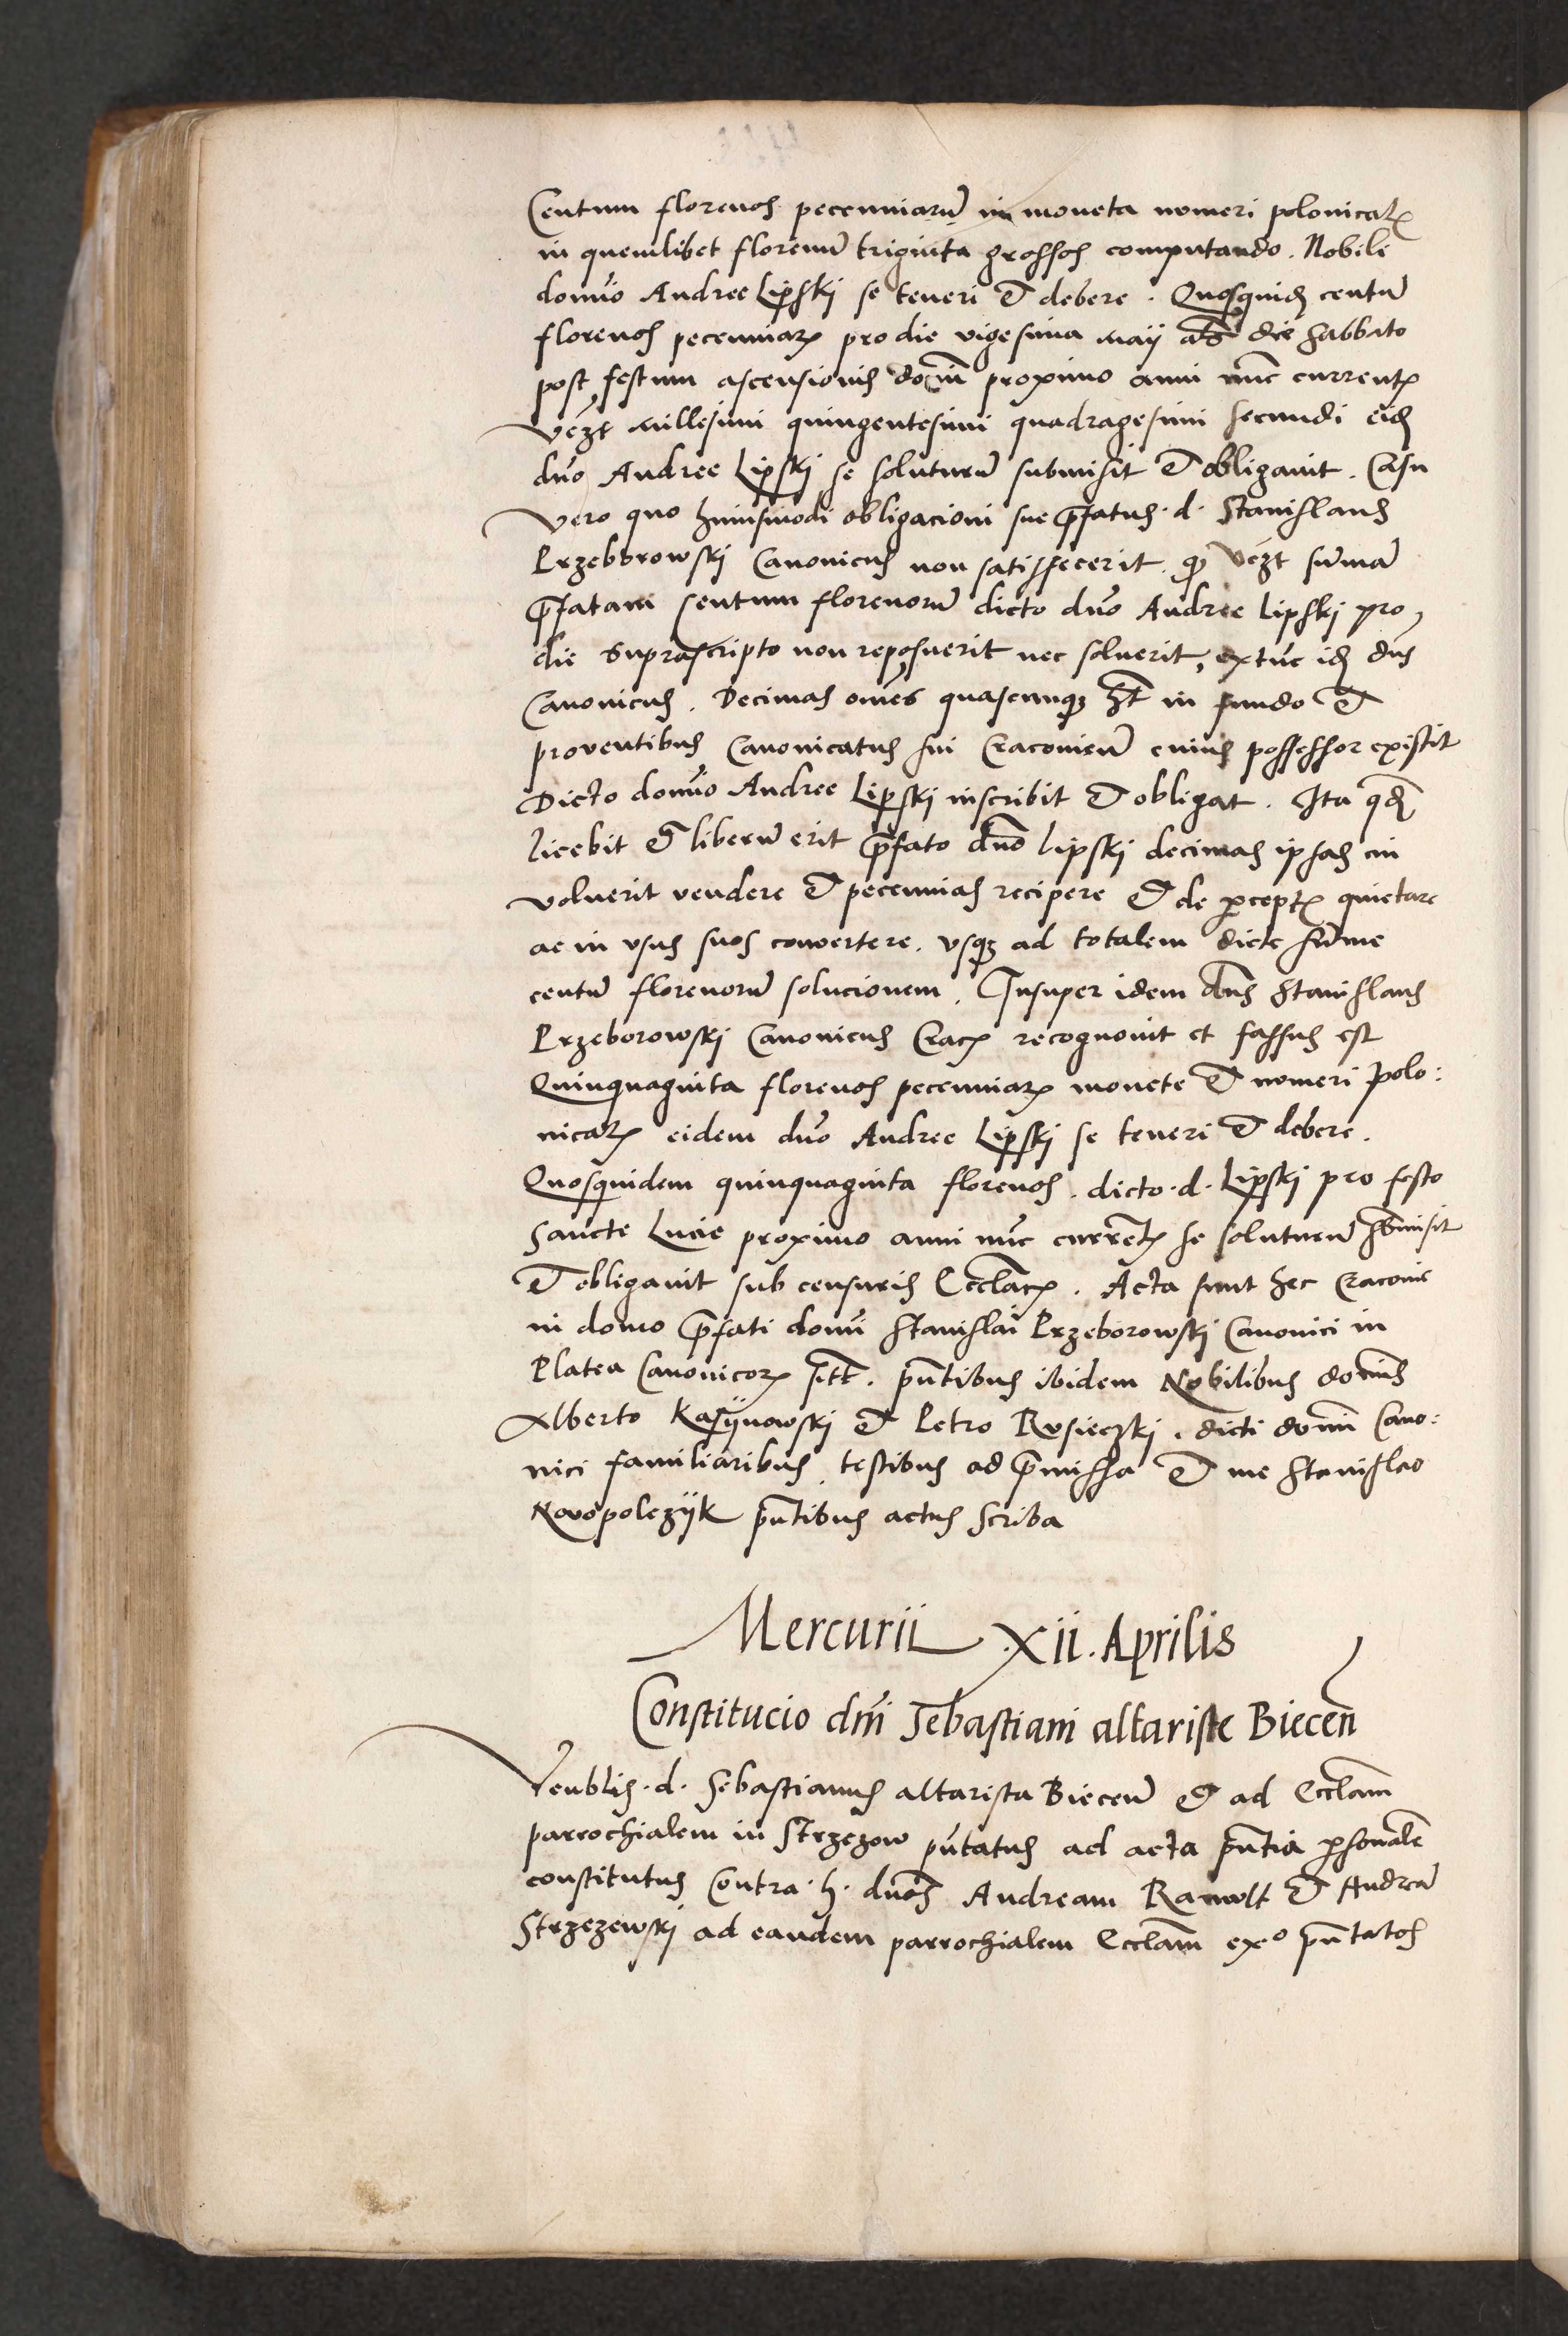 Centum florenos pecuniarū in moneta numeri polonicaꝝ
in quemlibet florenū triginta grossos computando. Nobili
domīo Andree Lipski se teneri & debere. Quosquidē centū
florenos pecuniaꝝ pro die vigesima maij als die sabbato
post festum ascensionis domī proximo anni nūc currentꝭ
vēzt millesimi quingentesimi quadragesimi secundi eidē
dn̄o Andree Lipski se soluturū submisit & obligauit. Casu
vero quo huiusmodi obligacioni sue p̄fatus .d. Stanislaus
Przeborowski Canonicus non satisfecerit. qꝫ vēzt sum̄ā
p̄fatam centum florenorū dicto dn̄o Andree Lipski pro
die suprascripto non reposuerit nec soluerit, extūc idē dn̄s
Canonicus. Decimas om̄es quascunqꝫ h̄t in fundo &
proventibus Canonicatus sui Cracovien̄ cuius possessor existit
Dicto domīo Andree Lipski inscribit & obligat. Ita qđ
licebit & liberū erit p̄fato dn̄o Lipski decimas ipsas cui
voluerit vendere & pecunias recipere & de p̱ceptꝭ quietare
ac in vsus suos convertere. vsqꝫ ad totalem dicte sum̄e
centū florenorū solucionem. Insuper idem dn̄s Stanislaus
Przeborowski Canonicus Cracꝭ recognovit et fassus est
Quinquaginta florenos pecuniaꝝ monete & numeri polo:
nicaꝝ eidem dn̄o Andree Lipski se teneri & debere.
Quosquidem quinquaginta florenos. dicto .d. Lipski pro festo
Sancte Lucie proximo anni nūc currētꝭ se soluturū sb̄misit
& obligauit sub censuris Eccl̄acꝭ. Acta sunt hec Cracovie
in domo p̄fati domī Stanislai Przeborowski Canonici in
Platea Canonicoꝝ sitt. pn̄tibus ibidem Nobilibus domīs
Alberto Kasijnowski & Petro Rusieczki. dicti domī Cano:
nici familiaribus testibus ad p̄missa & me Stanislao
Novopolczijk pn̄tibus actus scriba
Mercurii .Xii. Aprilis
Constitucio dn̄i Sebastiani altariste Biecen̄
Ven̄blis .d. Sebastianus altarista Biecen̄ & ad Eccl̄am
parrochialem in Strzezow pn̄tatus ad acta pn̄tia p̱sonalr̄
constitutus Contra .h. dn̄os Andream Ranwolt & Andreā
Strzezewski ad eandem parrochialem Eccl̄am exº pn̄tatos